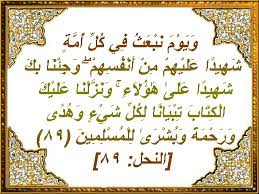 وَيَوْمَ نَبْعَثُ فِي كُلِّ أُمَّةٍ
شَهِيدًا عَلَيْهِمْ مِنْ أَنْفُسِهِمْ ۖ وَجِئْنَا بِكَ
شَهِيدًا عَلَىٰ هَٰؤُلَاءِ ۚ وَنَزَّلْنَا عَلَيْكَ
الْكِتَابَ تِبْيَانًا لِكُلِّ شَيْءٍ وَهُدًى
وَرَحْمَةً وَبُشْرَىٰ لِلْمُسْلِمِينَ (٨٩)
[النحل: ٨٩]